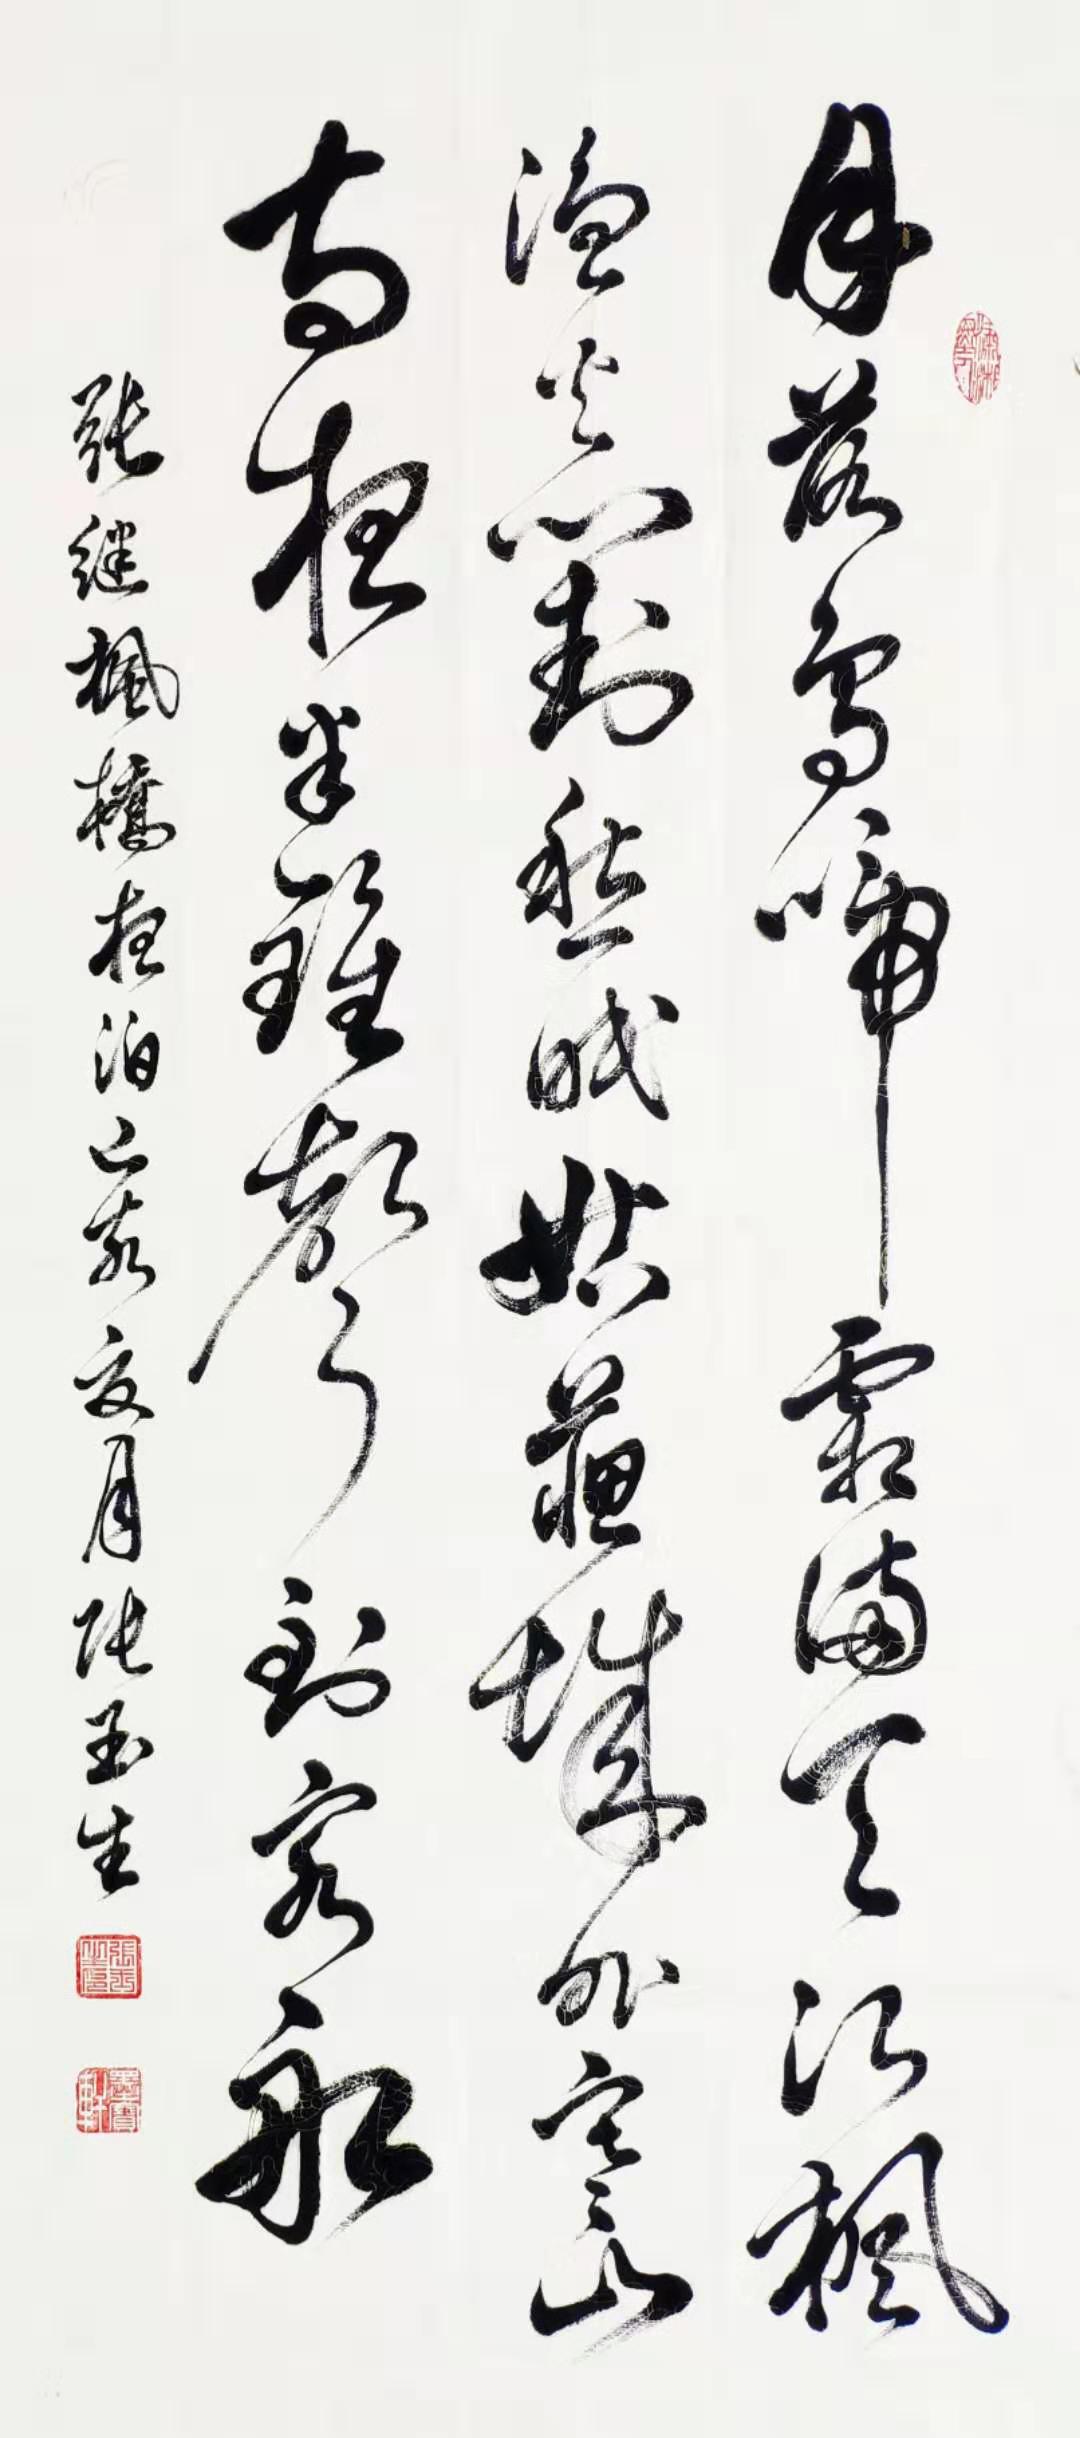 月落烏啼霜滿天江楓
漁火對愁眠姑蘇城外寒山
寺夜半鐘聲到客船
張繼楓橋夜泊己亥夏月張玉生
張玉生印
墨寶軒